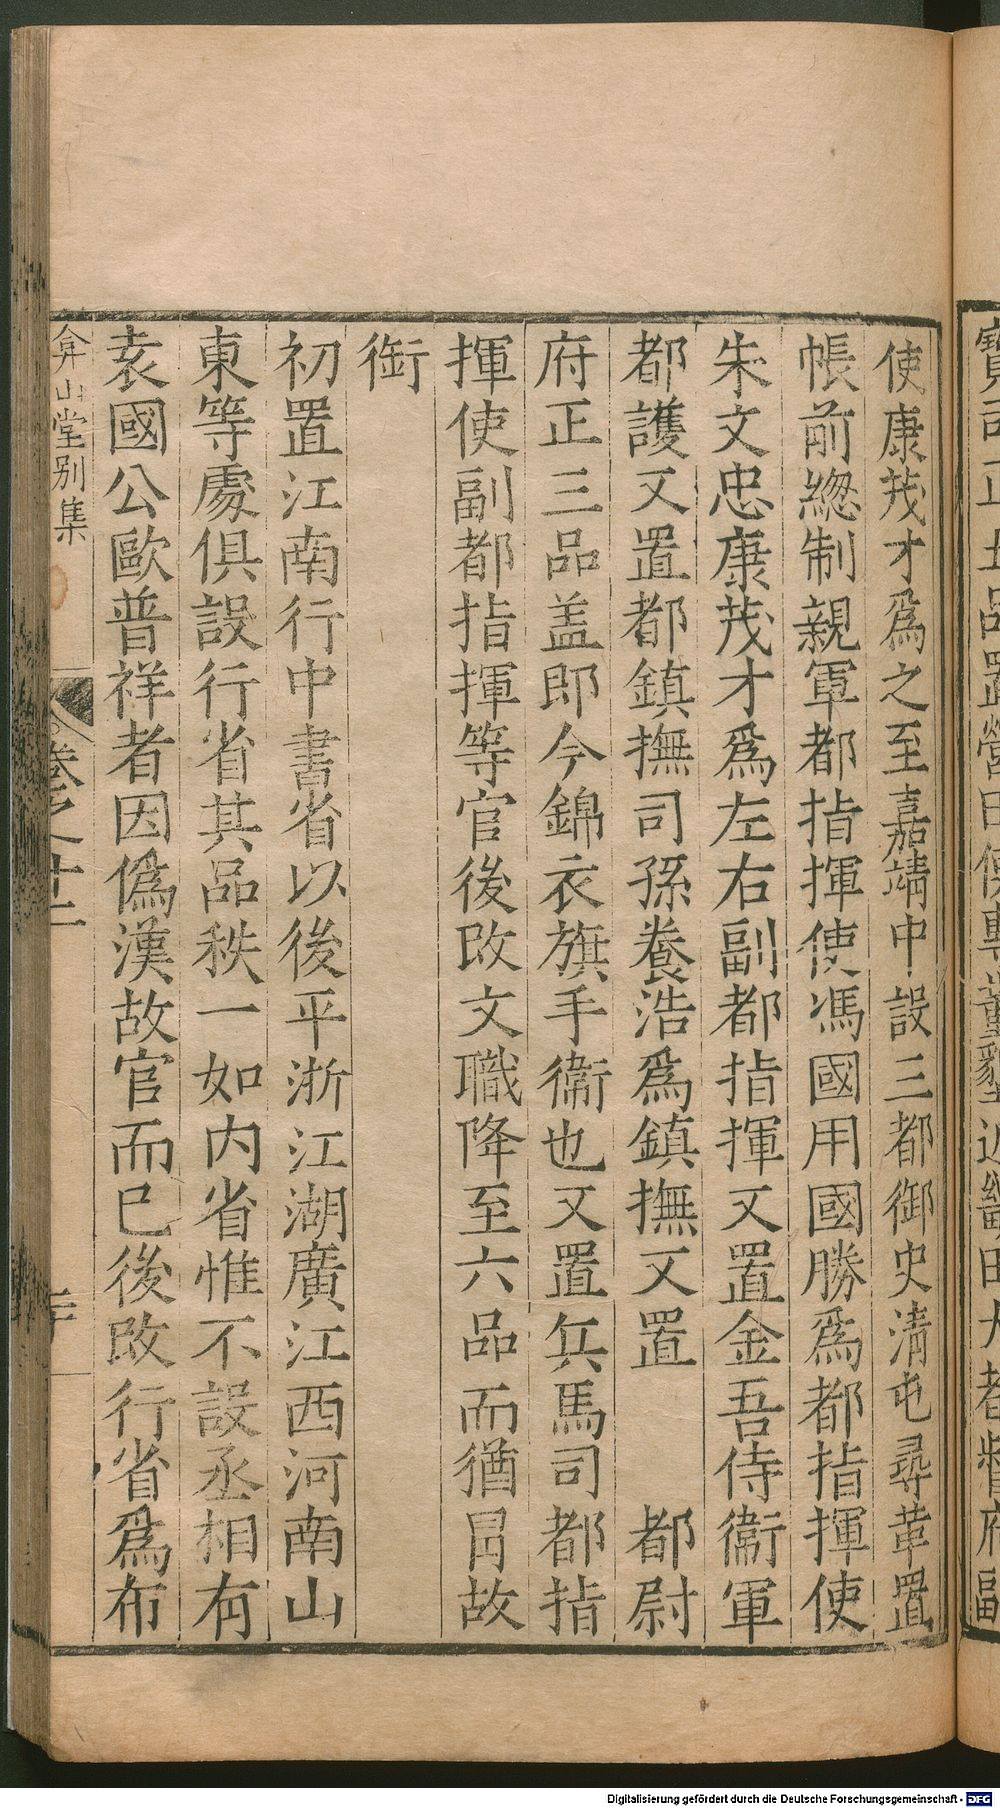 使康茂才爲之至嘉靖中設三都御史清屯尋革置
帳前總制親軍都指揮使馮國用國勝爲都指揮使
朱文忠康茂才爲左右副都指揮又置金吾侍衞軍
都護又置都鎮撫司孫養浩爲鎮撫又置 都尉
府正三品盖即今錦衣旗手衞也又置兵馬司都指
揮使副都指揮等官後改文職降至六品而猶冐故
銜
初置江南行中書省以後平浙江湖廣江西河南山
東等處俱設行省其品秩一如内省惟不設丞相有
袁國公歐普祥者因僞漢故官而已後改行省爲布
弇山堂别集
卷之十二
二十
Digitalisierung gefördert durch die Deutsche Forschungsgemeinschaft - DFG